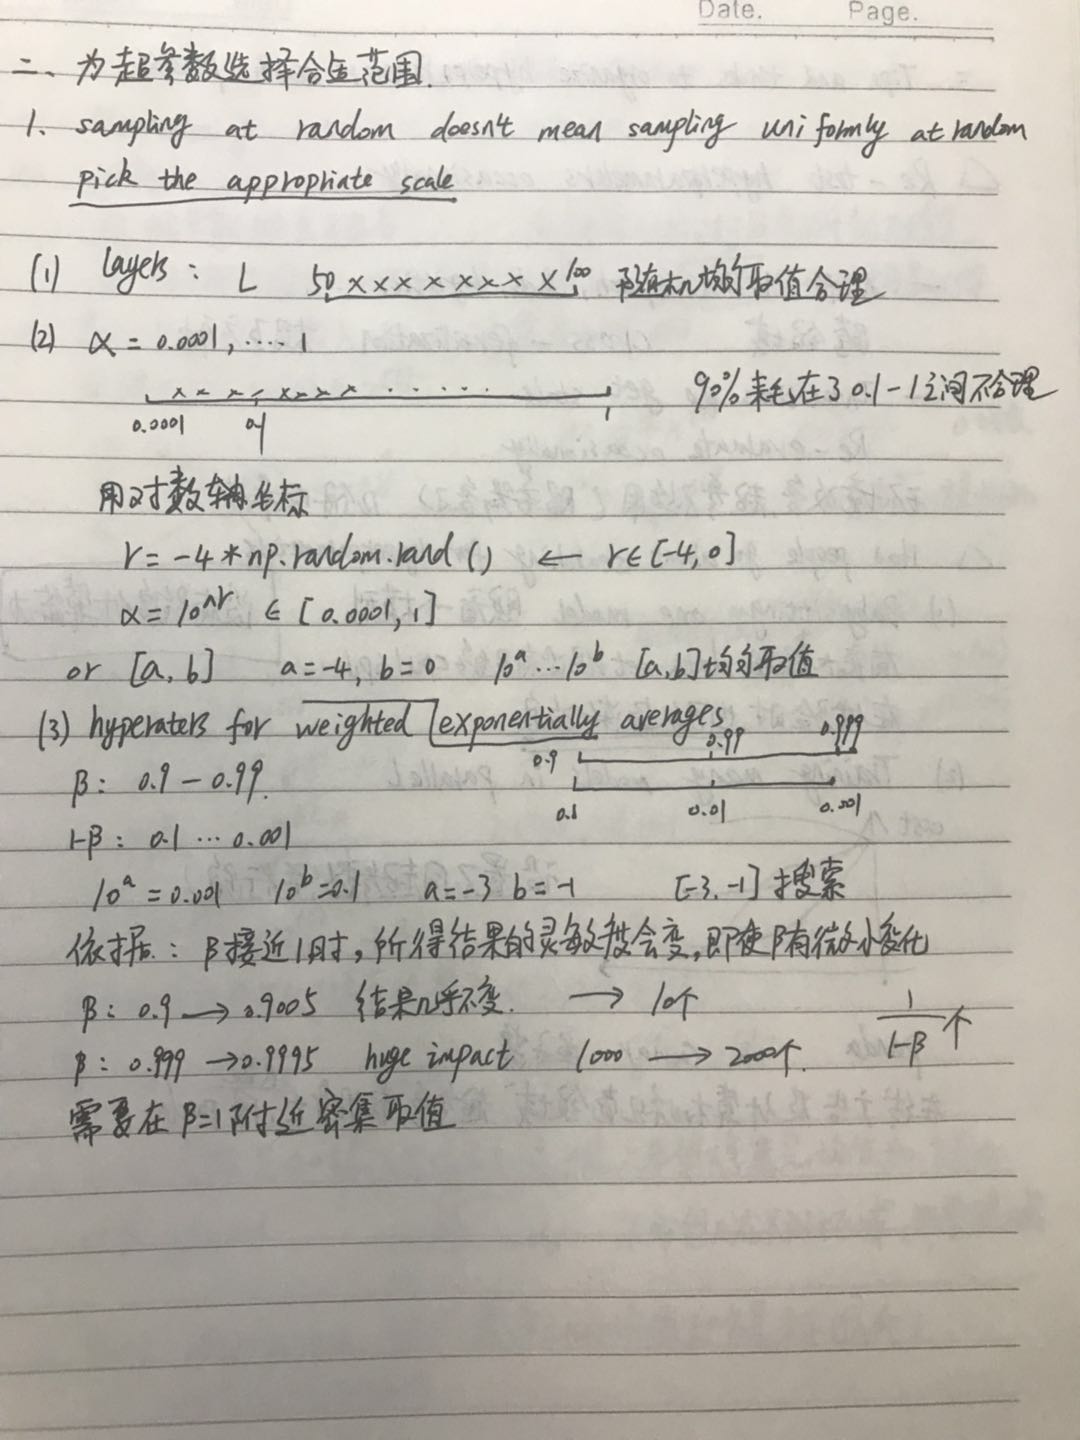 Date. Page.
二、为超参数选择合适范围.
1. sampling at random doesn't mean sampling uniformly at random
pick the appropriate scale
(1) layers : L 50 ××××××××× 100 随机均匀取值合理
(2) α = 0.0001, ..... 1
×××××××× ...... 90%耗在了0.1-1之间不合理
0.0001 0.1 1
用对数轴坐标
r = -4 * np.random.rand () ← r∈[-4,0]
α = 10^r ∈ [0.0001, 1]
or [a, b] a=-4, b=0 10^a ... 10^b [a,b]均匀取值
(3) hyperaters for weighted exponentially averages
0.9 0.99 0.999
β: 0.9 - 0.99.
0.1 0.01 0.001
1-β : 0.1 ... 0.001
10^a = 0.001 10^b = 0.1 a = -3 b = -1 [-3, -1] 搜索
依据: β接近1时,所得结果的灵敏度会变,即使β有微小变化
β: 0.9 → 0.9005 结果几乎不变. → 10个 1/(1-β) 个
β: 0.999 → 0.9995 huge impact 1000 → 2000个.
需要在β=1附近密集取值